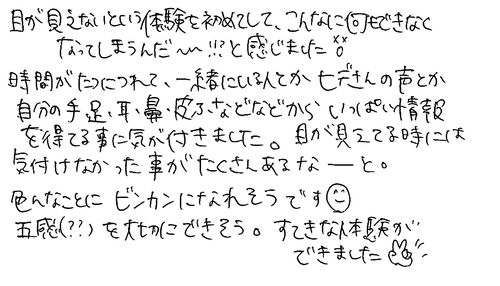 目が見えないという体験を初めてして、こんなに何もできなく
なってしまうんだ〜!!?と感じました
時間がたつにつれて、一緒にいる人とか ヒデさんの声とか
自分の手足、耳、鼻、皮ふなどなどから いっぱい情報
を得てる事に気が付きました。目が見えてる時には
気付けなかった事がたくさんあるなーと。
色んなことに ビンカンになれそうです
五感(??)を大切にできそう。すてきな体験が
できました